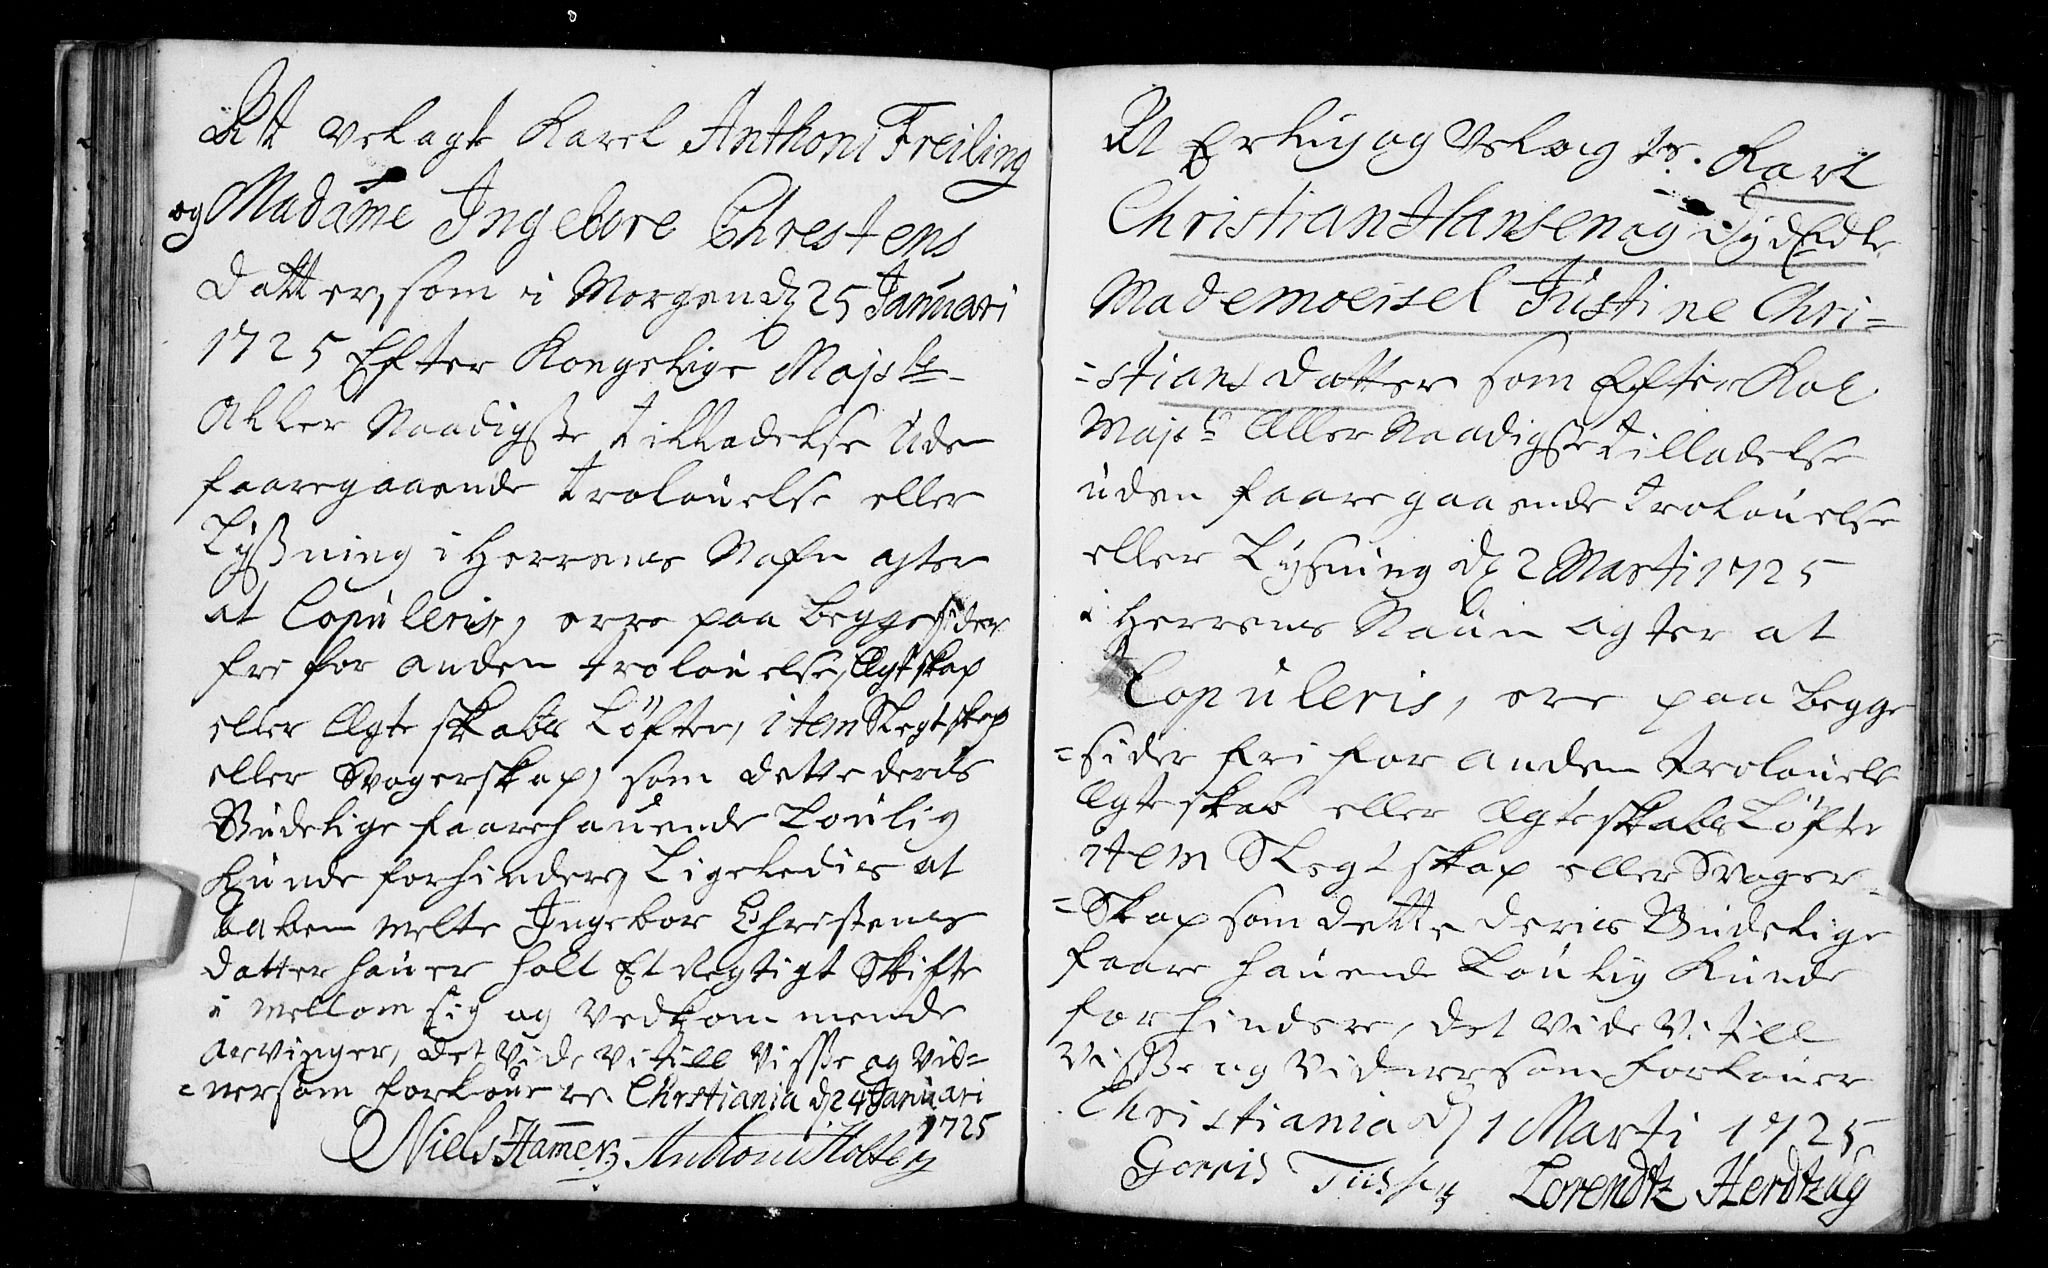 At velagt Karel Anthoni Freiling
og Madame Ingebore Chrestens
datter, som i Morgen d 25 Januari
1725 Efter Kongelige Majsts
Aller Naadigste tilladelse Uden
faaregaaende trolouelse eller
Lyssning i Herrens Nafn agter
at Copuleris, erre paa begge sider
fri for anden trolouelse, Ægtskap
eller Ægteskabs Løfter, item Slegtskap
eller Svogerskap, som dette deris
Gudelige faarehauende Loulig
Kunde forhindre, Ligeledis at
benelte Ingebor Christens
datter hauer holt Et Regtigt Skifte
i mellom sig og vedkommende
arvinger, det Vide Vi till Visse og vid-
=ner som forlouere. Chrstiania d 24 Januari
1725
Niels Hamer Anthoni Holter
At Erlig og Velagte Karl
Christian Hansen og Dyd Edle
Mademoeisel Justine Chri=
=stians datter som Efter Kol
Majts Aller Naadigste tilladelse
uden faaregaaende trolouelse
eller Lysning d 2 Marti 1725
i Herrens Naun agter at
Copuleris, ere paa begge
=sider fri for anden trolouelse
Ægteskab eller Ægteskabs Løfter
item Slegtskap eller Svoger-
=Skap som dette deris Gudelige
faare hauende Loulig Kunde
forhindre, det vide Vi till
Visse og Vidner som forlouer
Christiania d 1 Marti 1725
Gorris Lorendtz Herdtzug